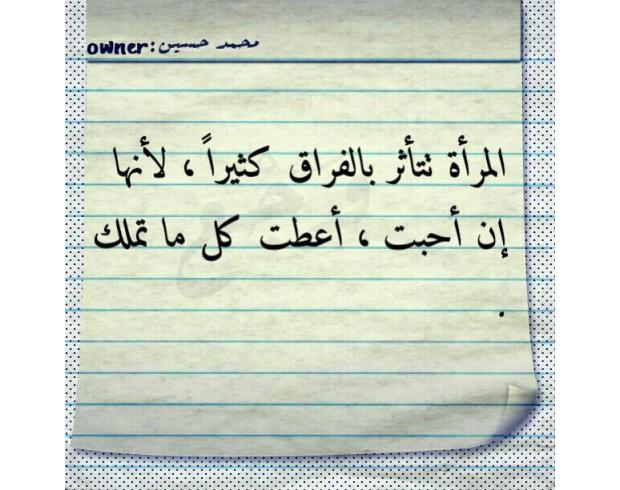 owner: محمد حسين
المرأة تتأثر بالفراق كثيراً ، لأنها
إن أحبت ، أعطت كل ما تملك
.